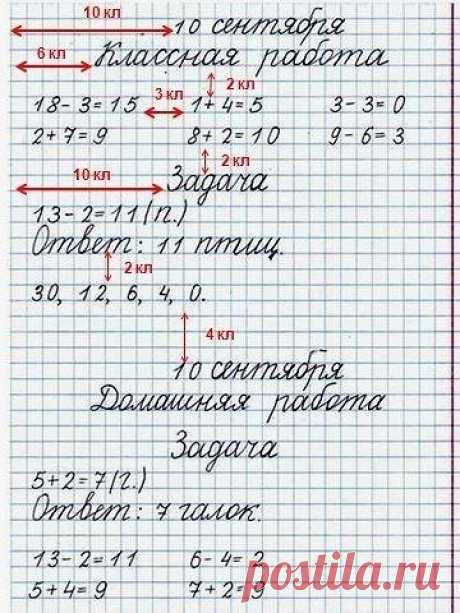 10 кл 10 сентября
6 кл Классная работа
2 кл
18-3=15 3 кл 1+4=5 3-3=0
2+7=9 8+2=10 9-6=3
2 кл
10 кл Задача
13-2=11(п.)
Ответ: 11 птиц.
2 кл
30, 12, 6, 4, 0.
4 кл
10 сентября
Домашняя работа
Задача
5+2=7(г.)
Ответ: 7 галок.
13-2=11 6-4=2
5+4=9 7+2=9
postila.ru